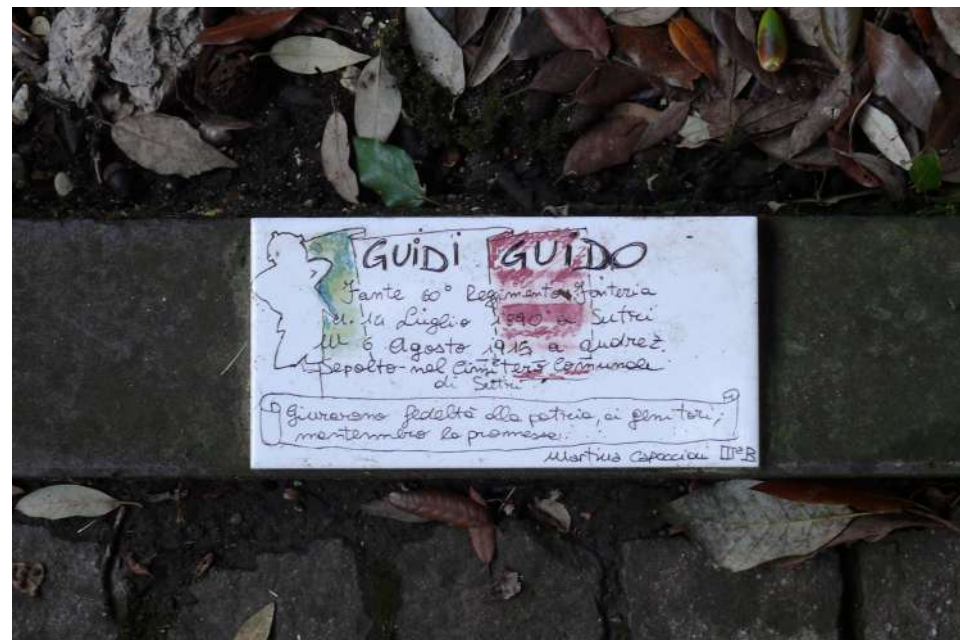 GUIDI GUIDO
Fante 60° Regimento Fanteria
n. 14 Luglio 1890 a Sutri
M 6 Agosto 1915 a Audrez.
Sepolto nel Cimitero Comunale
di Sutri
Giurarono fedeltà alla patria, ai genitori;
mantennero la promessa.
Martina Capoccioni IIIªB